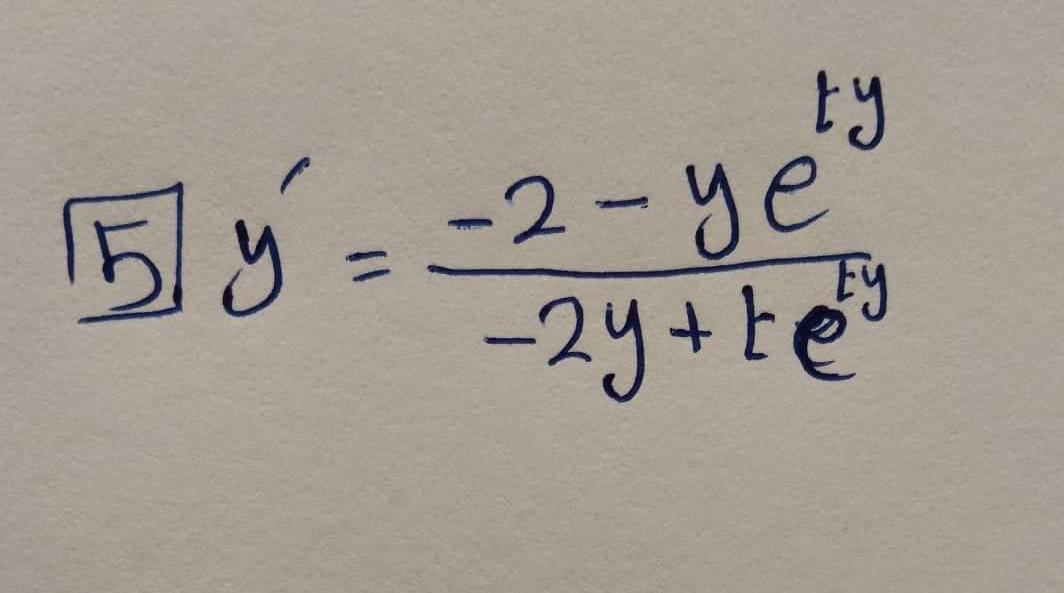 5 y' = \frac{-2 - ye^{ty}}{-2y + te^{ty}}